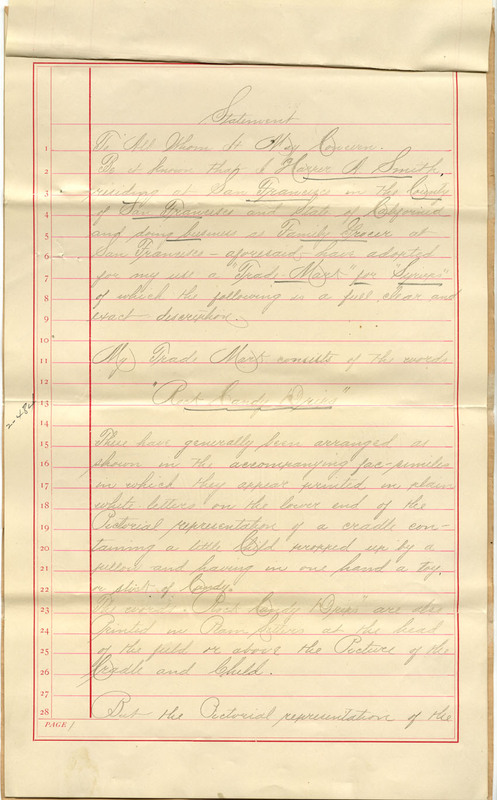 Statement
1 To All Whom It May Concern.
2 Be it known that I Harry A Smith,
3 residing at San Francisco in the County
4 of San Francisco and State of California
5 and doing business as Family Grocer at
6 San Francisco – aforesaid, have adopted
7 for my use a "Trade Mark" for "Syrups"
8 of which the following is a full clear and
9 exact description.
10
11 My Trade Mark consists of the words
12
13 "Rock Candy Drips"
14
15 These have generally been arranged as
16 shown in the accompanying fac-similies
17 in which they appear printed in plain
18 white letters on the lower end of the
19 Pictorial representation of a cradle con-
20 taining a little Child propped up by a
21 pillow and having in one hand a toy,
22 or stick of Candy.
23 The words "Rock Candy Drips" are also
24 Printed in Plain Letters at the head
25 of the field or above the Picture of the
26 Cradle and Child.
27
28 But the Pictorial representation of the
PAGE 1
2-484